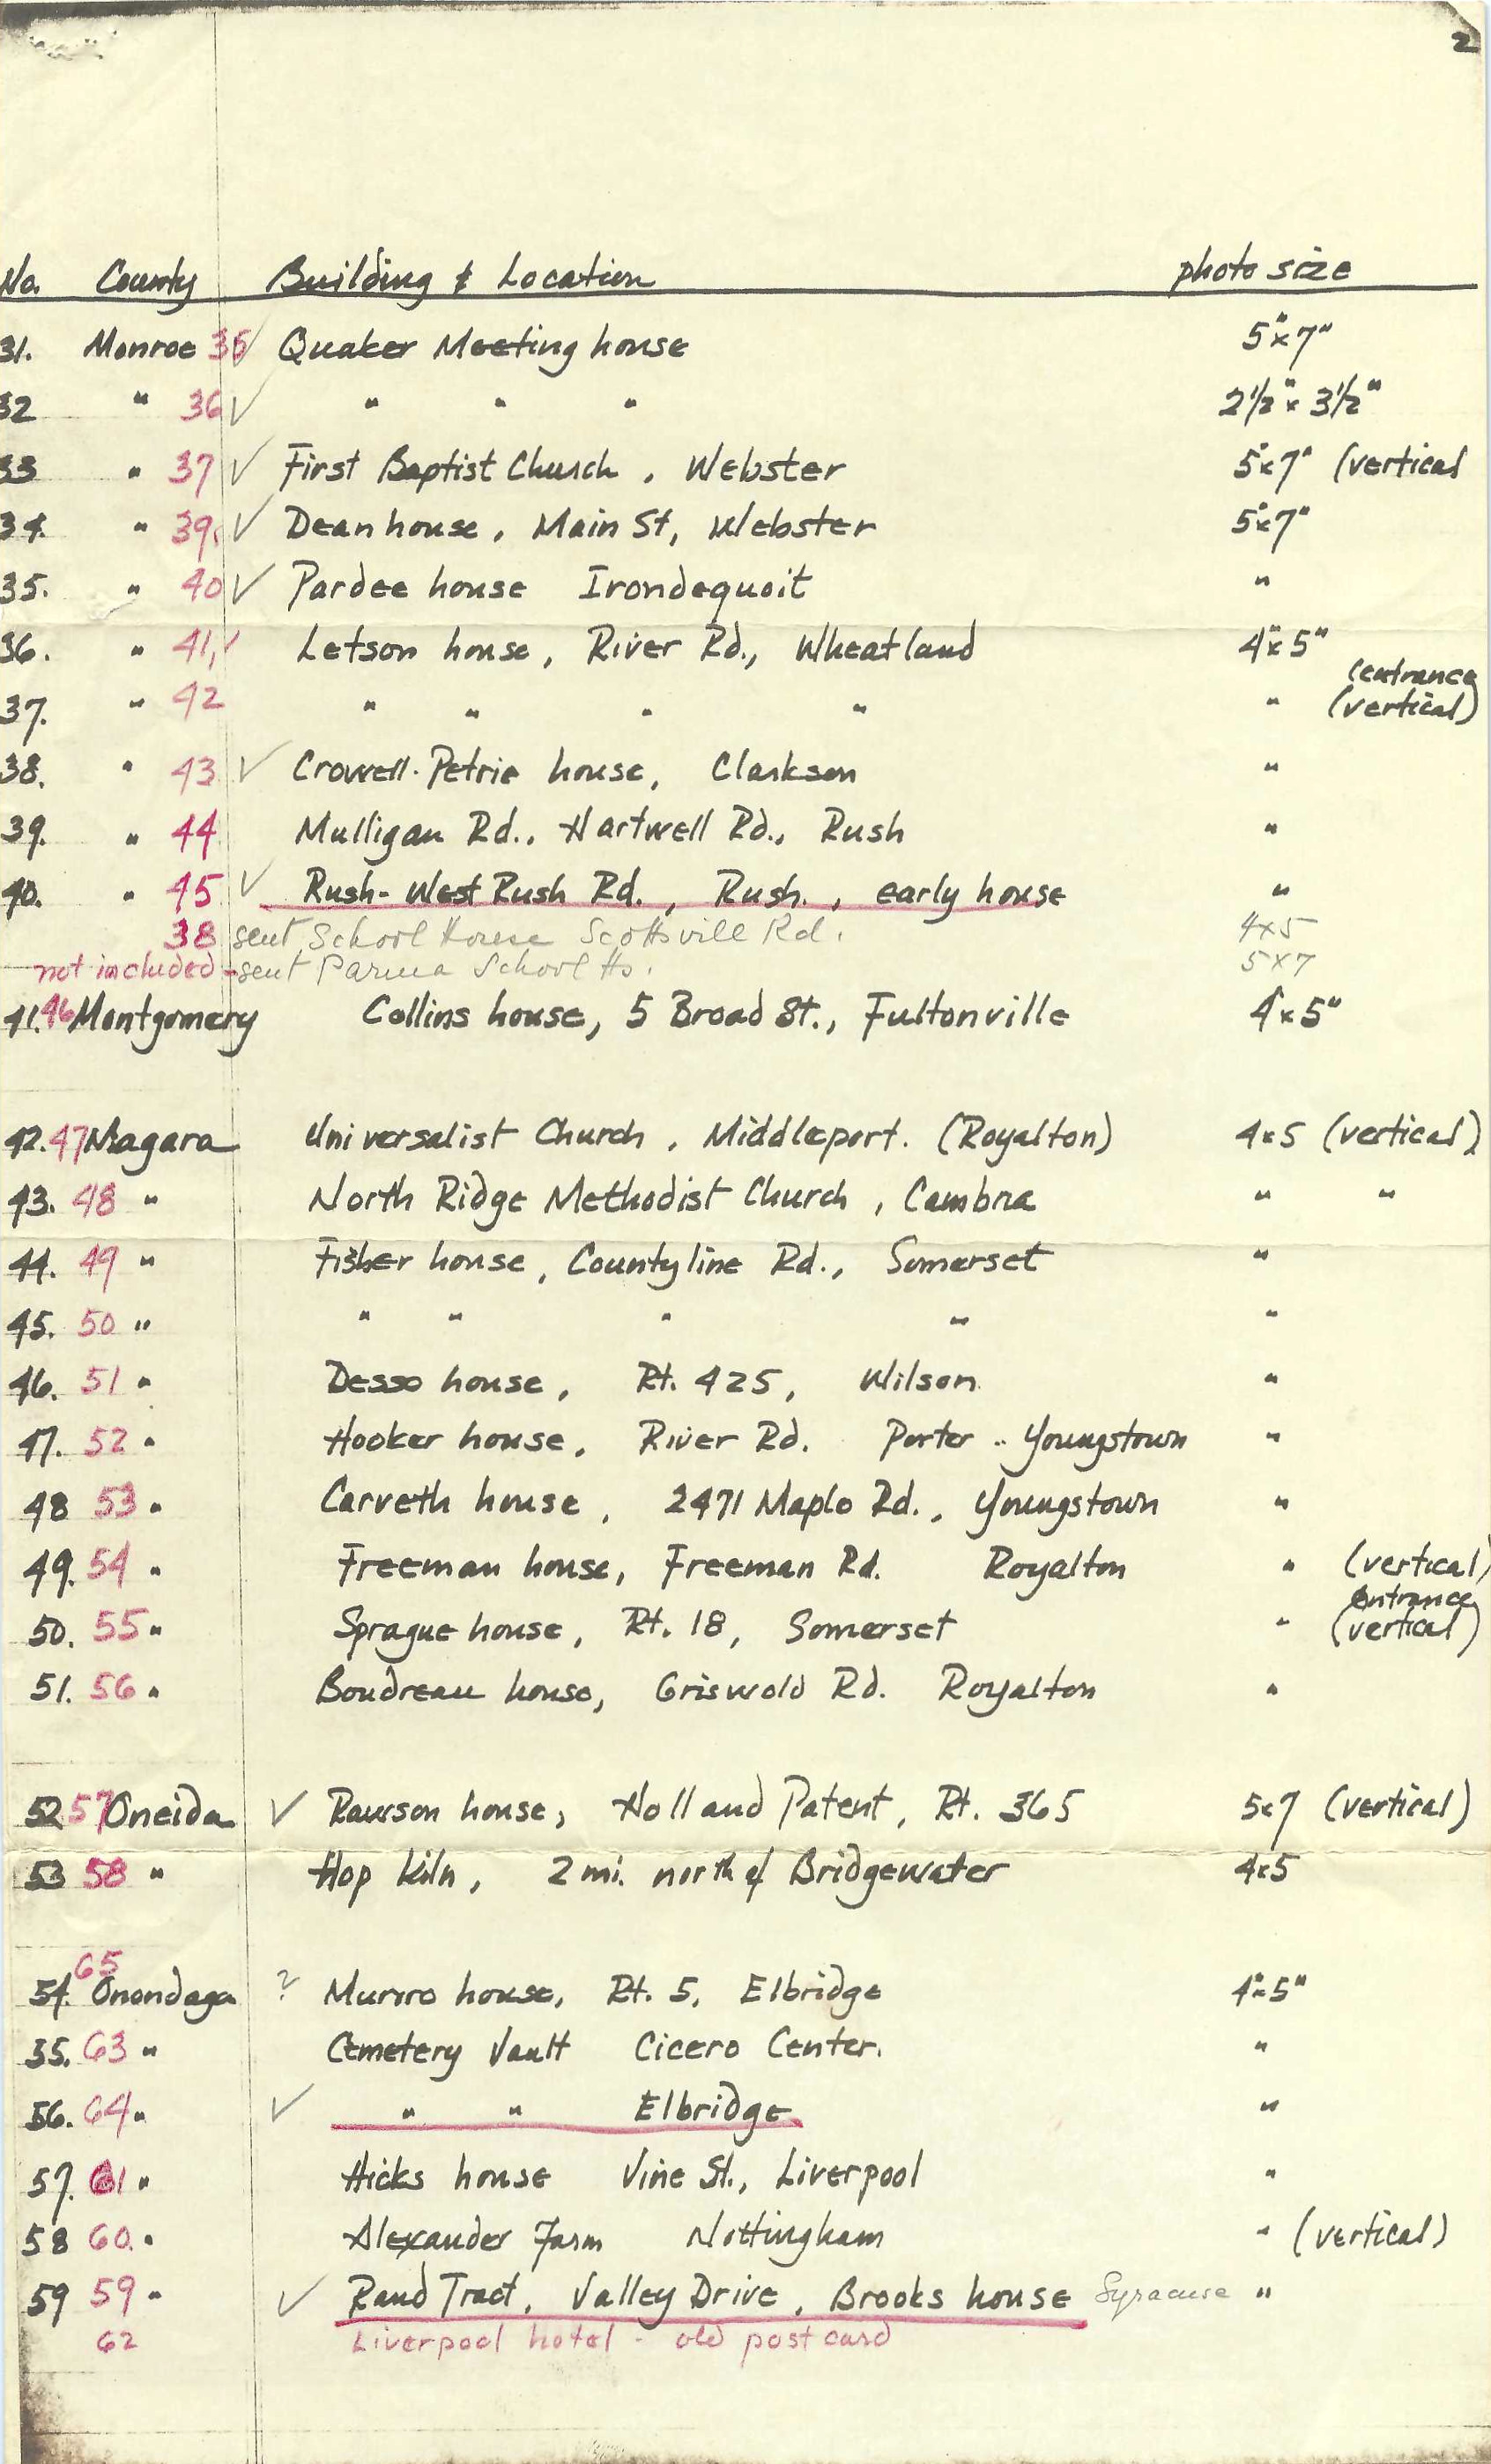 2
No. County Building & Location photo size
31. Monroe 35 ✓ Quaker Meeting house 5"x7"
32 " 36 ✓ " " " 2½"x 3½"
33 " 37 ✓ First Baptist Church, Webster 5"x7" (vertical
34. " 39. ✓ Dean house, Main St, Webster 5"x7"
35. " 40 ✓ Pardee house Irondequoit "
36. " 41, ✓ Letson house, River Rd., Wheatland 4"x5"
37. " 42 " " " " " (entrance
(vertical)
38. " 43 ✓ Crowell-Petrie house, Clarkson "
39. " 44 Mulligan Rd., Hartwell Rd., Rush "
40. " 45 ✓ Rush-West Rush Rd., Rush., early house "
38 sent School House Scottsvill Rd. 4x5
not included - sent Parma School Ho. 5x7
41. 46 Montgomery Collins house, 5 Broad St., Fultonville 4x5"
42. 47 Niagara Universalist Church, Middleport. (Royalton) 4x5 (vertical)
43. 48 " North Ridge Methodist Church, Cambria " "
44. 49 " Fisher house, County line Rd., Somerset "
45. 50 " " " " " "
46. 51 " Desso house, Rt. 425, Wilson "
47. 52 " Hooker house, River Rd. Porter - Youngstown "
48 53 " Carveth house, 2471 Maple Rd., Youngstown "
49. 54 " Freeman house, Freeman Rd. Royalton " (vertical)
50. 55 " Sprague house, Rt. 18, Somerset " entrance
(vertical)
51. 56 " Boudreau house, Griswold Rd. Royalton "
52 57 Oneida ✓ Rawson house, Holland Patent, Rt. 365 5x7 (vertical)
53 58 " Hop Kiln, 2 mi. north of Bridgewater 4x5
54. 65 Onondaga ? Munro house, Rt. 5, Elbridge 4"x5"
55. 63 " Cemetery Vault Cicero Center. "
56. 64 " ✓ " " Elbridge "
57. 61 " Hicks house Vine St., Liverpool "
58 60. " Alexander Farm Nottingham " (vertical)
59 59 " ✓ Rand Tract, Valley Drive, Brooks house Syracuse "
62 Liverpool hotel - old post card